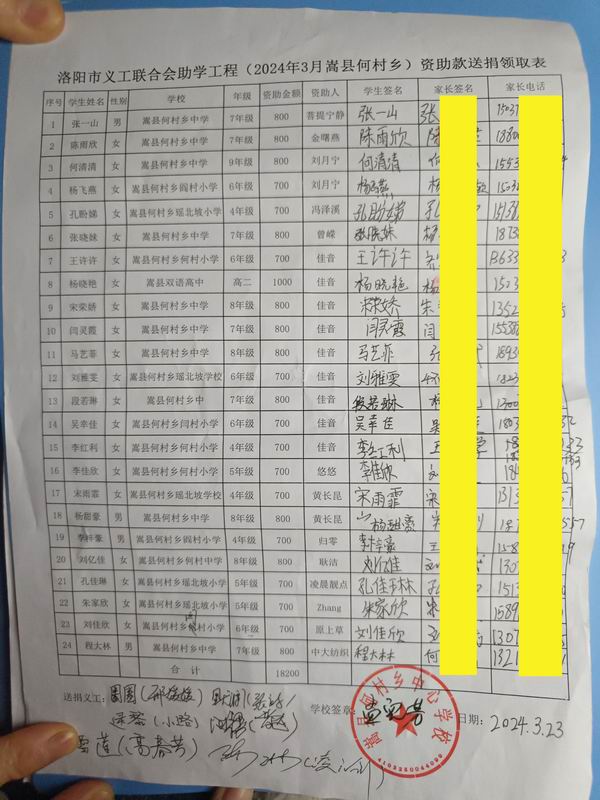 洛阳市义工联合会助学工程（2024年3月嵩县何村乡）资助款送捐领取表
序号 学生姓名 性别 学校 年级 资助金额 资助人 学生签名 家长签名 家长电话
1 张一山 男 嵩县何村乡中学 7年级 800 菩提宁静 张一山 张
2 陈雨欣 女 嵩县何村乡中学 7年级 800 金曙燕 陈雨欣 陈
3 何清清 女 嵩县何村乡中学 9年级 800 刘月宁 何清清 何 1553
4 杨飞燕 女 嵩县何村乡阎村小学 6年级 700 刘月宁 杨飞燕 杨
5 孔盼娣 女 嵩县何村乡瑶北坡小学 4年级 700 冯泽溪 孔盼娣 孔
6 张晓妹 女 嵩县何村乡中学 7年级 800 曾嵘 张晓妹 杨 1873
7 王许许 女 嵩县何村乡小学 6年级 700 佳音 王许许
8 杨晓艳 女 嵩县双语高中 高二 1000 佳音 杨晓艳 杨
9 宋荣娇 女 嵩县何村乡中学 8年级 800 佳音 宋荣娇 朱 1352
10 闫灵霞 女 嵩县何村乡中学 7年级 800 佳音 闫灵霞 闫
11 马艺菲 女 嵩县何村乡中学 8年级 800 佳音 马艺菲 张
12 刘雅雯 女 嵩县何村乡瑶北坡学校 6年级 700 佳音 刘雅雯
13 段若琳 女 嵩县何村乡中 7年级 800 佳音 段若琳
14 吴幸佳 女 嵩县何村乡闫村小学 6年级 700 佳音 吴幸佳 吴
15 李红利 女 嵩县何村乡小学 4年级 700 佳音 李红利 王
16 李佳欣 女 嵩县何村乡何村小学 5年级 700 悠悠 李佳欣
17 宋雨霏 女 嵩县何村乡瑶北坡学校 4年级 700 黄长昆 宋雨霏 宋 1313
18 杨甜豪 男 嵩县何村乡中学 8年级 800 黄长昆 杨甜豪
19 李梓豪 男 嵩县何村乡阎村小学 4年级 700 归零 李梓豪 王
20 刘亿佳 女 嵩县何村乡何村中学 8年级 800 耿洁 刘亿佳
21 孔佳琳 女 嵩县何村乡瑶北坡小学 5年级 700 凌晨靓点 孔佳琳 孔 1513
22 朱家欣 女 嵩县何村乡瑶北坡小学 5年级 700 Zhang 朱家欣 朱 1589
23 刘佳欣 女 嵩县何村乡村小学 6年级 700 原上草 刘佳欣 1307
24 程大林 男 嵩县何村乡中学 7年级 800 中大纺织 程大林 何 1321
合计 18200
送捐义工： 学校签章： 日期：2024.3.23
嵩县何村乡中心学校